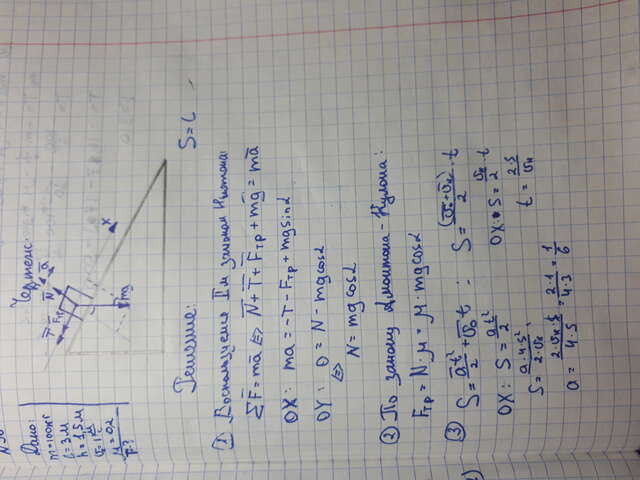 N 30
Дано:
m=100кг
l=3м
h=1,5м
μ=0,2
T-?
Чертеж:
T
Fтр
N
a
mg
x
Решение:
S=L
① Воспользуемся IIм законом Ньютона:
∑F̄=mā ⇔ N̄+T̄+F̄тр+mḡ=mā
OX: ma=-T-Fтр+mgsinα
OY: 0=N-mgcosα
⇔
N=mgcosα
② По закону Амонтона-Кулона:
Fтр=N·μ=μ·mgcosα
③ S=āt²/2+v̄₀t ; S=(v̄₀+v̄к)/2·t
OX: S=at²/2 OX: S=vк/2·t
S=a·4S²/2·vк² t=2·S/vк
a=2·vк·S/4·S=2·1/4·3=1/6